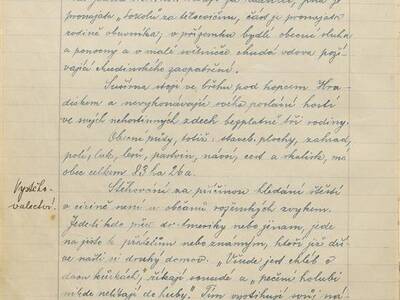 pronajata „Sokolu" za tělocvičnu, část je pronajata
rodině obuvníka; v přízemku bydlí obecní sluha
a ponocný a v malé světničce chudá vdova poží-
vající chudinského zaopatření.
Sušírna stojí ve břehu pod kopcem Hra-
diskem a nevykonávajíc svého poslání hostí
ve svých nehostinných zdech bezplatně tři rodiny.
Obecní půdy, totiž: staveb. plochy, zahrad,
polí, luk, lesů, pastvin, návsí, cest a skalisk, má
obec celkem 83 ha 26 a.
Vystěho-
valectví.
Stěhování za příčinou hledání štěstí
v cizině není u občanů zvykem.
Jede-li kdo přec do Ameriky nebo jinam, jede
na jisto k přátelům nebo známým, kteří již dří-
ve našli si druhý domov. „Všude jest chléb o
dvou kůrkách," říkají osmudě a „pečení holubi
nikde nelétají do huby." Tím svůj ná-